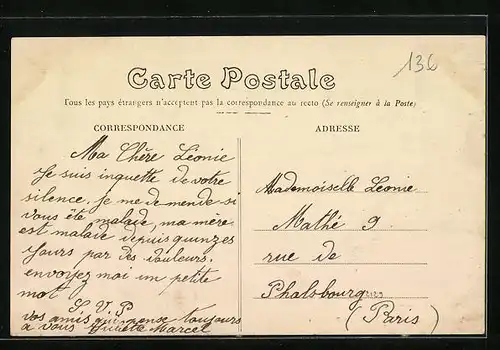 136
Carte Postale
Tous les pays étrangers n'acceptent pas la correspondance au recto (Se renseigner à la Poste)
CORRESPONDANCE
Ma Chère Léonie
Je suis inquette de votre
silence, je me de mende si
vous ête malade, ma mère
est malade depuis quinzes
Jours par des douleurs.
envoyez moi un petite
mot
S. V. P
vos amis qui pense toujours
a vous Juliette Marcel
ADRESSE
Mademoiselle Leonie
Mathé 9
rue de
Phalsbourg
(Paris)